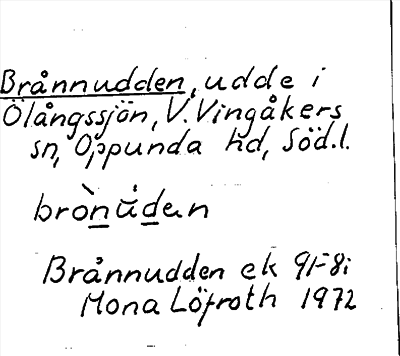 Brånnudden, udde i
Ölångssjön, V. Vingåkers
sn, Oppunda hd, Söd.l.
bròn u̇den
Brånnudden ek 9F8i
Mona Löfroth 1972